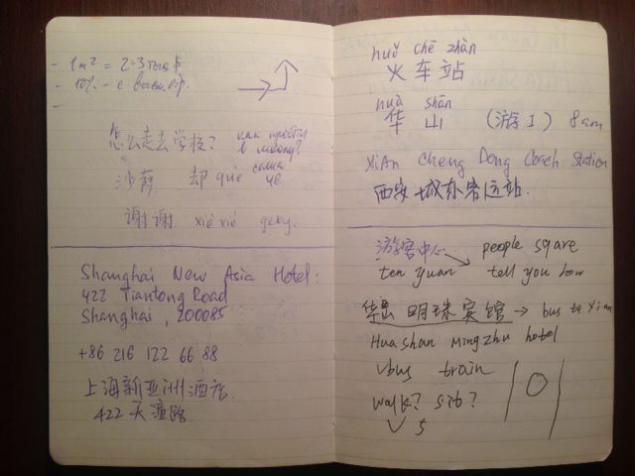 - 1 m² = 2-3 тыс $
- 10% - с
怎么走去学校? как пройти в школу?
沙 却 què
谢谢 xiè xiè
Shanghai New Asia Hotel:
422 Tiantong Road
Shanghai, 200085
+86 216 122 66 88
上海新亚洲酒店
422 天潼路
huǒ chē zhàn
火车站
huà shān
华山 (游1) 8am
XiAn Cheng Dong Coach Station
西安城东客运站.
游客中心 people sqare
ten yuan tell you how
华岳明珠宾馆 → bus to Xian
Huashan Mingzhu hotel
bus train
walk? sit?
5